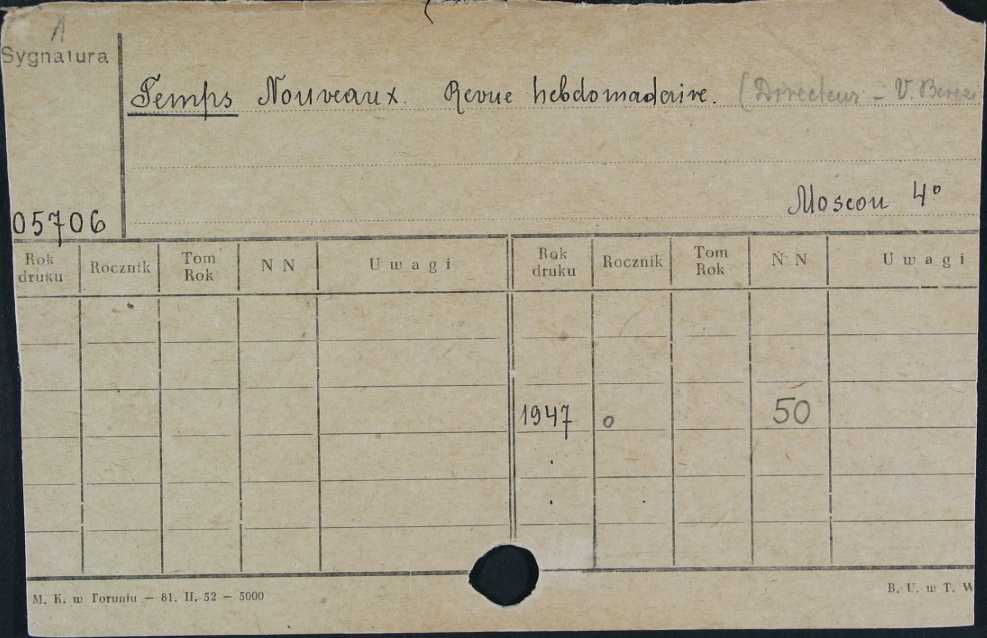 A
Sygnatura
Temps Nouveaux. Revue hebdomaderire. (Directeur - V.
Moscou 4°
05706
Rok druku Rocznik Tom Rok N N Uwagi Rok druku Rocznik Tom Rok N N Uwagi
1947 o 50
M. K. w Toruniu — 81. II. 52 — 5000 B. U. w T. W